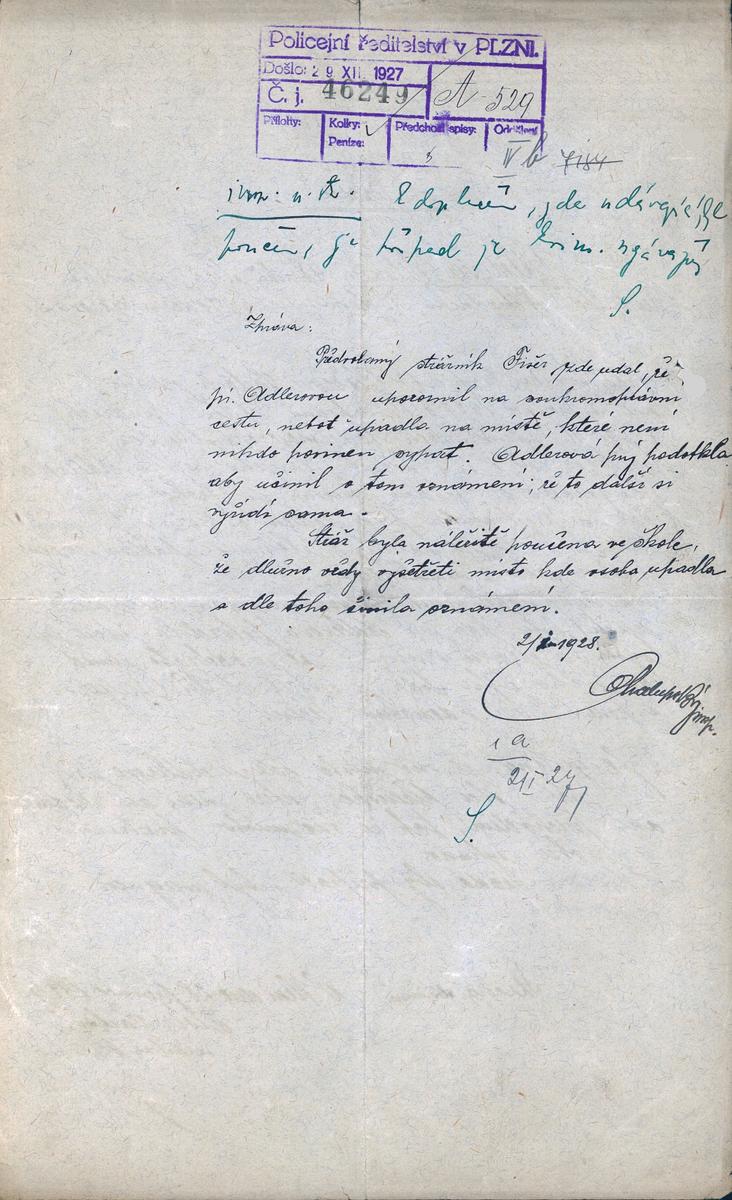 Policejní ředitelství v PLZNI.
Došlo: 29 XII. 1927
Č. j. 46249 A-529
Přílohy: Kolky: Předchozí spisy: Oddělení
Peníze:
IV b
K doplnění, zde
je případ je
S.
Zpráva:
strážník Fišer zde udal, že
pí. Adlerovou upozornil na soukromoprávní
cestu, neboť upadla na místě, které není
nikdo povinen sypat. Adlerová prý podotkla
aby učinil o tom oznámení, že to další si
vyřídí sama.
Stráž byla náležitě poučena ve škole,
že dlužno vždy vyšetřiti místo kde osoba upadla
a dle toho činila oznámení.
2/I-1928.
S.